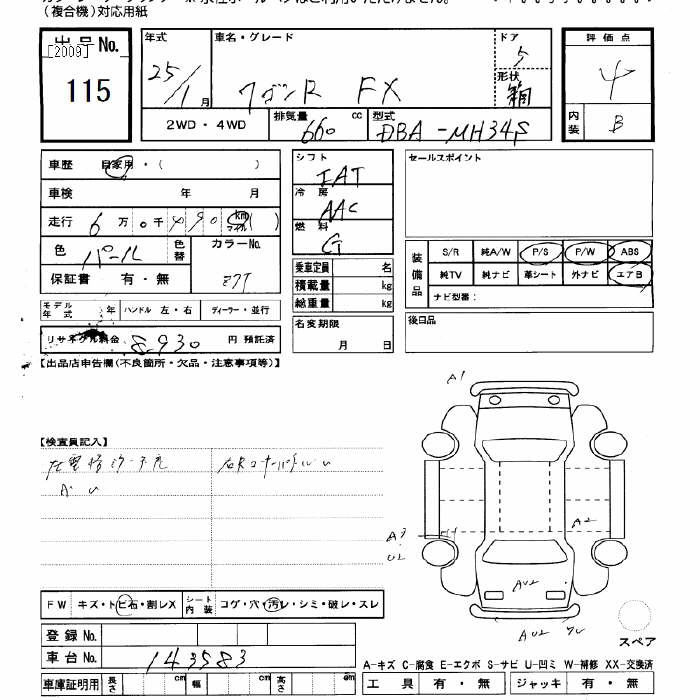 (複合機)対応用紙
出品No.
[2009]
115
年式 25/1月
車名・グレード ワゴンR FX
ドア 5
形状 箱
2WD・4WD
排気量 660 cc
型式 DBA-MH34S
評価点 4
内装 B
車歴 自家用・( )
車検 年 月
走行 6万0千490 km マイル ( )
色 パール 色替
カラーNo. Z7T
保証書 有・無
モデル年式 年 ハンドル 左・右 ディーラー・並行
リサイクル料金 8,930 円 預託済
シフト IAT
冷房 AAC
燃料 G
乗車定員 名
積載量 kg
総重量 kg
名変期限 月 日
セールスポイント
装備品
S/R 純A/W P/S P/W ABS
純TV 純ナビ 革シート 外ナビ エアB
ナビ型番:
後日品
【出品店申告欄(不良箇所・欠品・注意事項等)】
【検査員記入】
A1
A2
A3
U2
AU2
AU2
FW キズ・トビ石・割レX シート内装 コゲ・穴・汚レ・シミ・破レ・スレ
登録No.
車台No. 143583
車庫証明用 長さ cm 幅 cm 高さ cm
スペア
A-キズ C-腐食 E-エクボ S-サビ U-凹ミ W-補修 XX-交換済
工具 有・無 ジャッキ 有・無